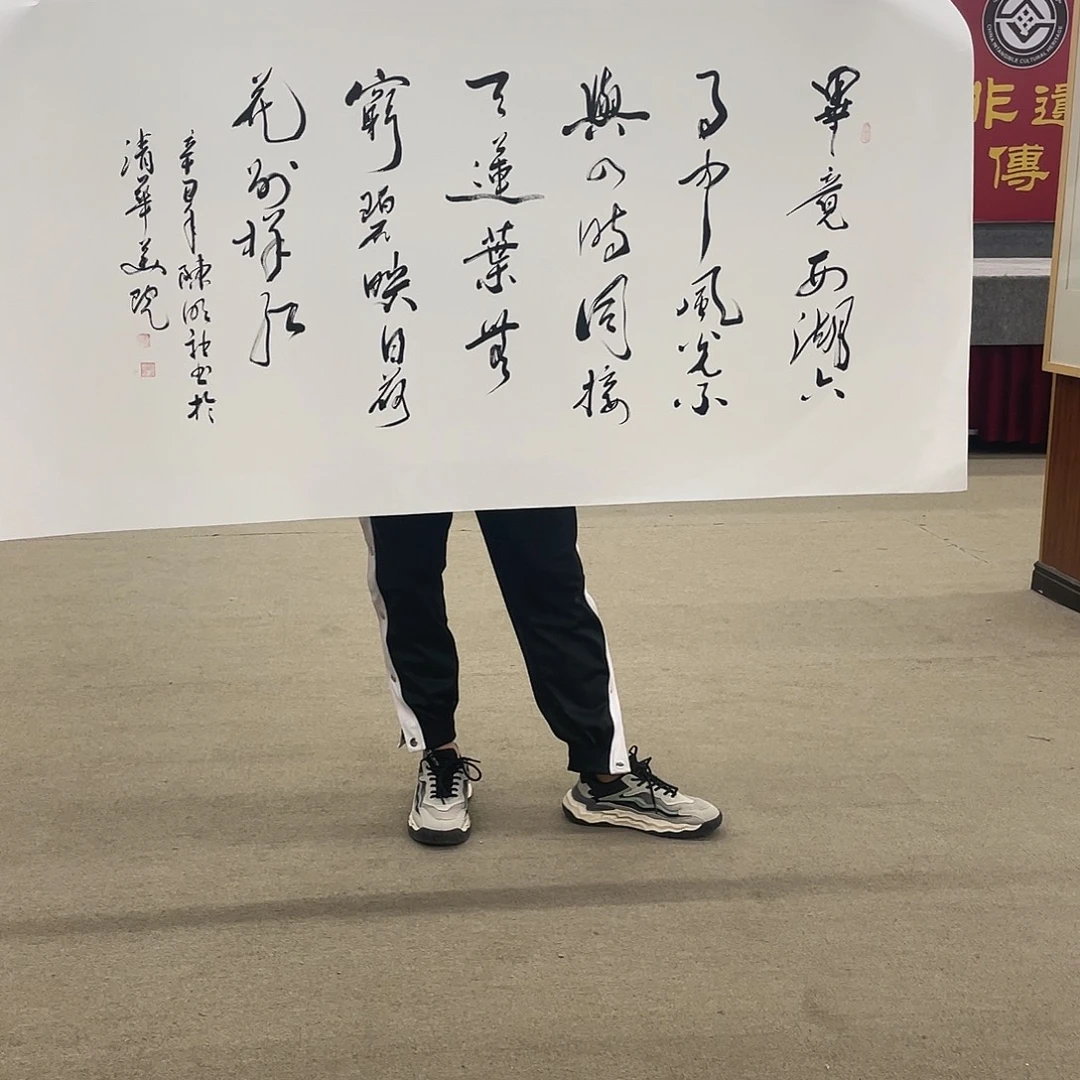 畢竟西湖六
月中風光不
與四時同接
天蓮葉無
窮碧映日荷
花別樣紅
辛丑年陳书於
清華美院
CHINA INTANGIBLE CULTURAL HERITAGE
非遺
傳